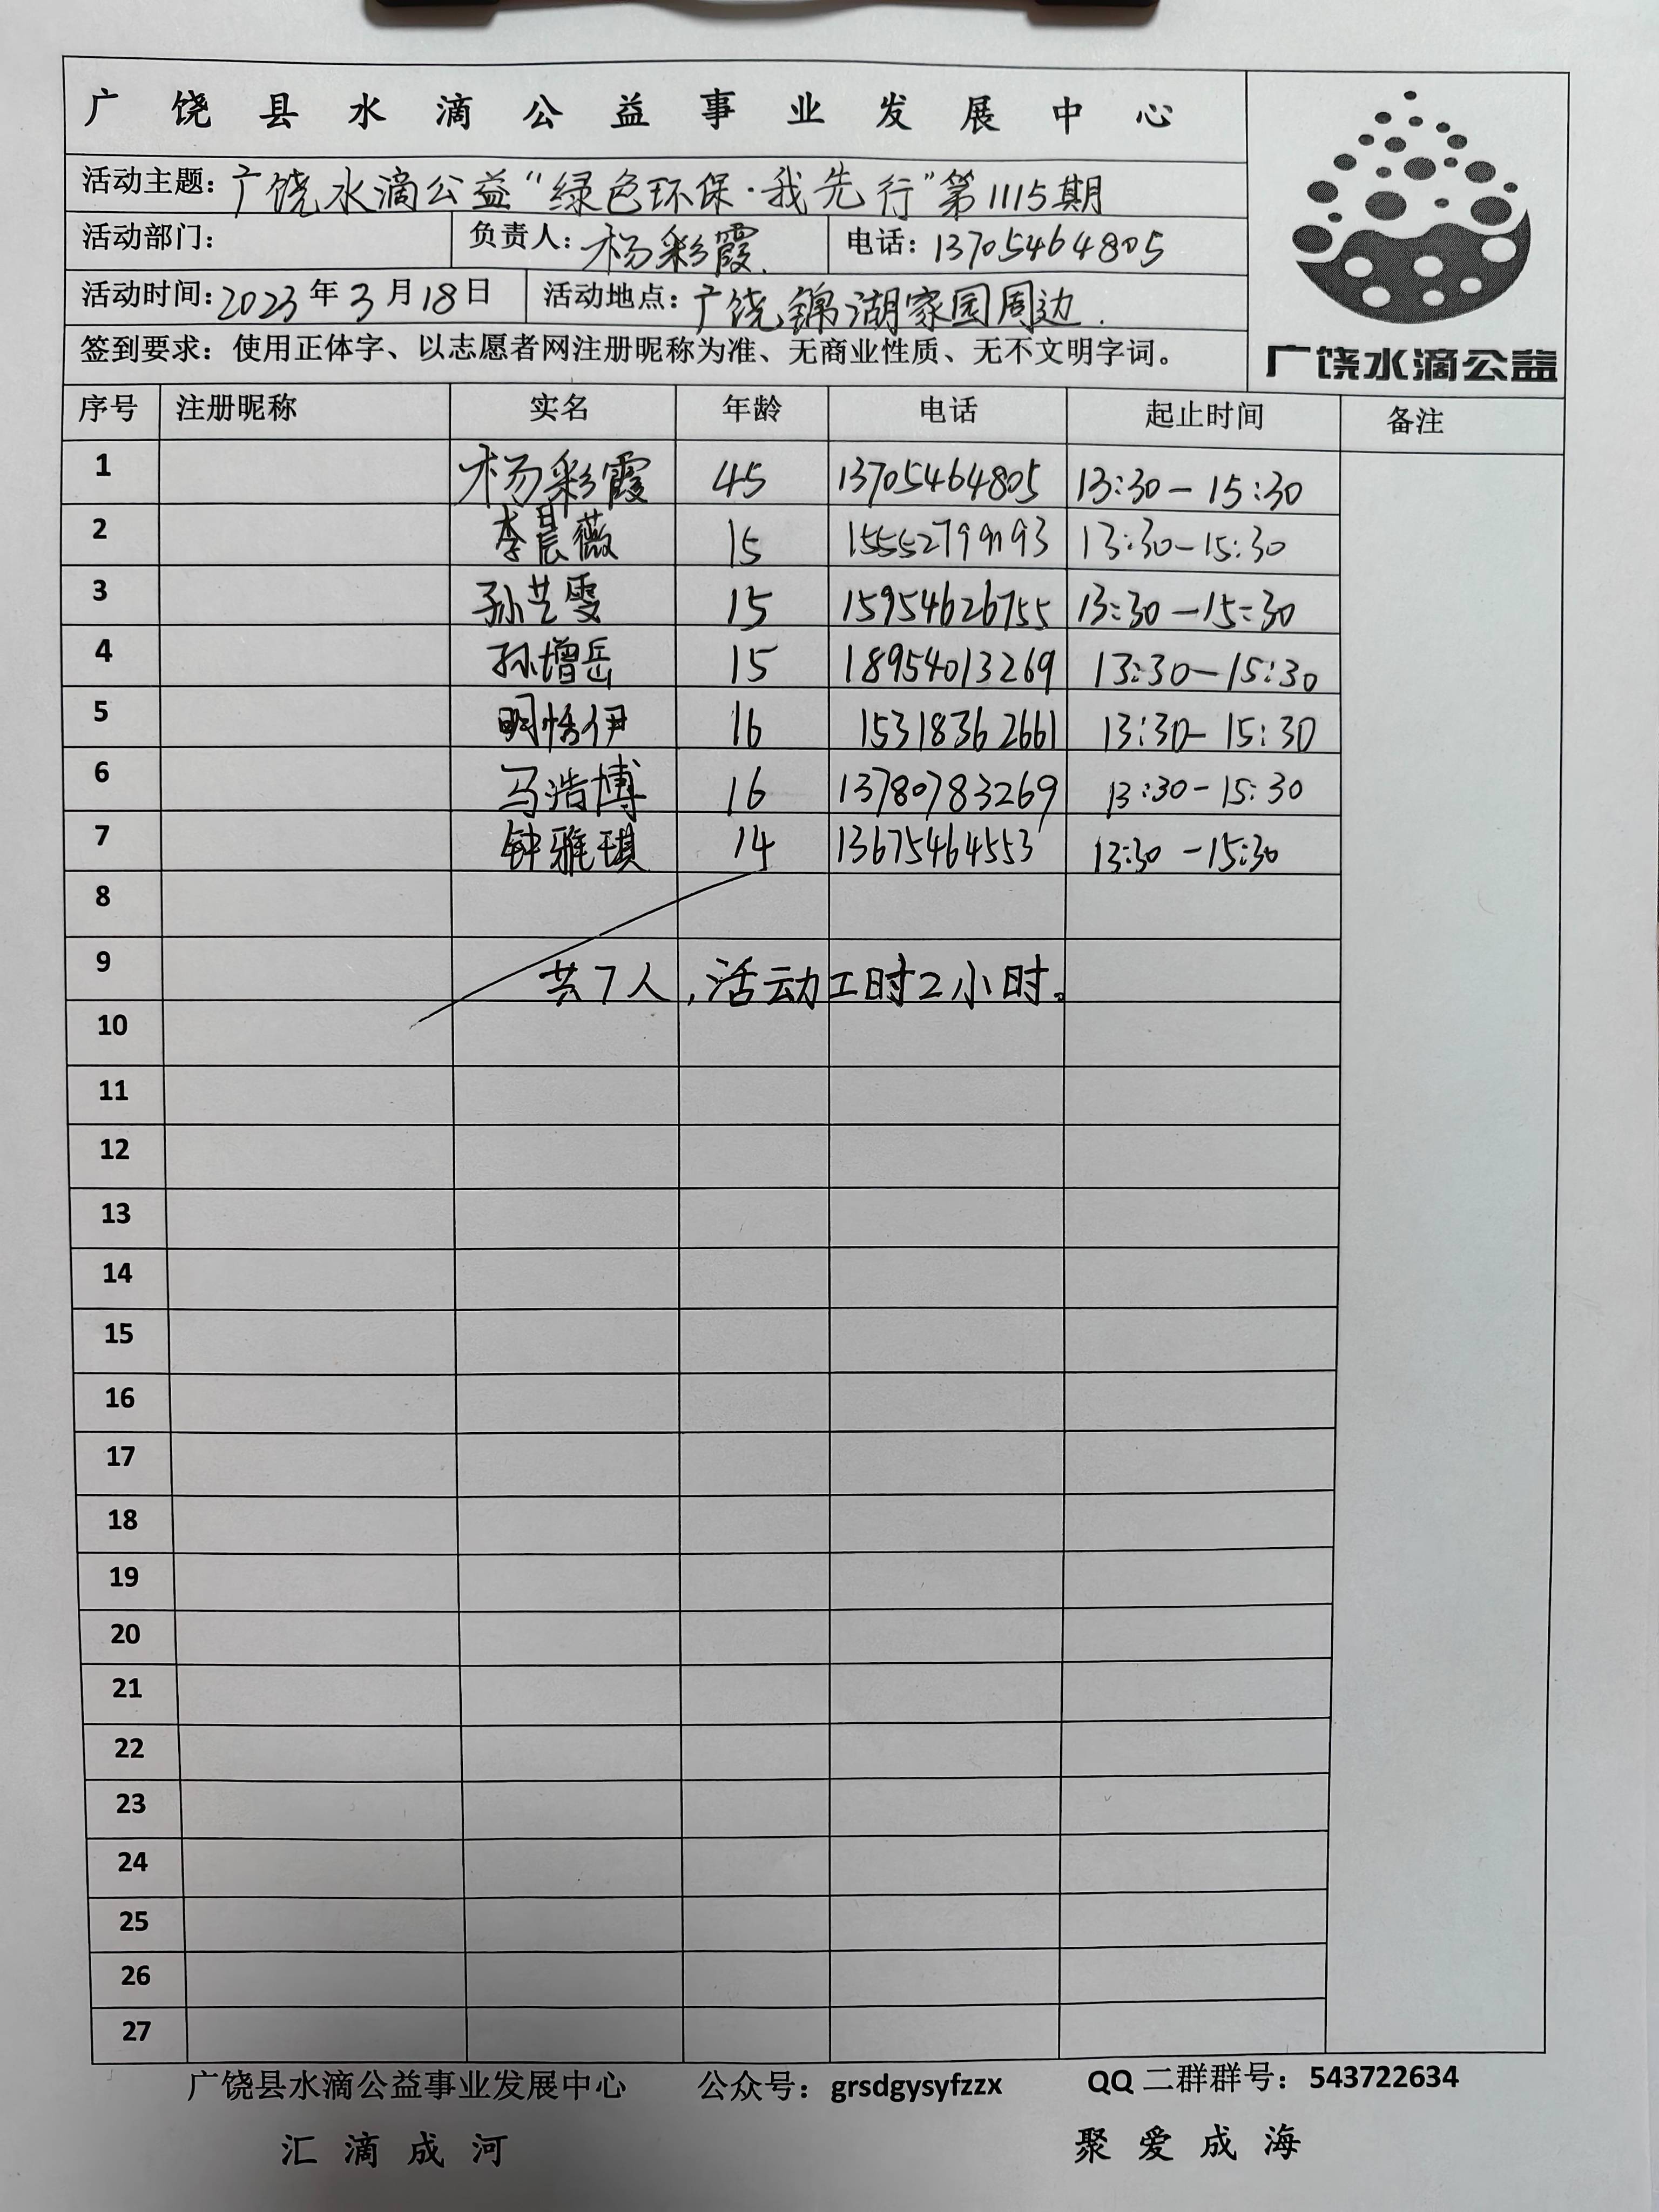 广饶县水滴公益事业发展中心
活动主题：广饶水滴公益“绿色环保·我先行”第1115期
活动部门： 负责人：杨彩霞 电话：13705464805
活动时间：2023年3月18日 活动地点：广饶锦湖家园周边.
签到要求：使用正体字、以志愿者网注册昵称为准、无商业性质、无不文明字词。
广饶水滴公益
序号 注册昵称 实名 年龄 电话 起止时间 备注
1 杨彩霞 45 13705464805 13:30-15:30
2 李晨薇 15 13:30-15:30
3 孙艺雯 15 15954626755 13:30-15:30
4 孙增岳 15 18954013269 13:30-15:30
5 明恬伊 16 15318362661 13:30-15:30
6 马浩博 16 13780783269 13:30-15:30
7 钟雅琪 14 13675464553 13:30-15:30
8
9 共7人,活动工时2小时。
10
11
12
13
14
15
16
17
18
19
20
21
22
23
24
25
26
27
广饶县水滴公益事业发展中心 公众号：grsdgysyfzzx QQ二群群号：543722634
汇滴成河 聚爱成海